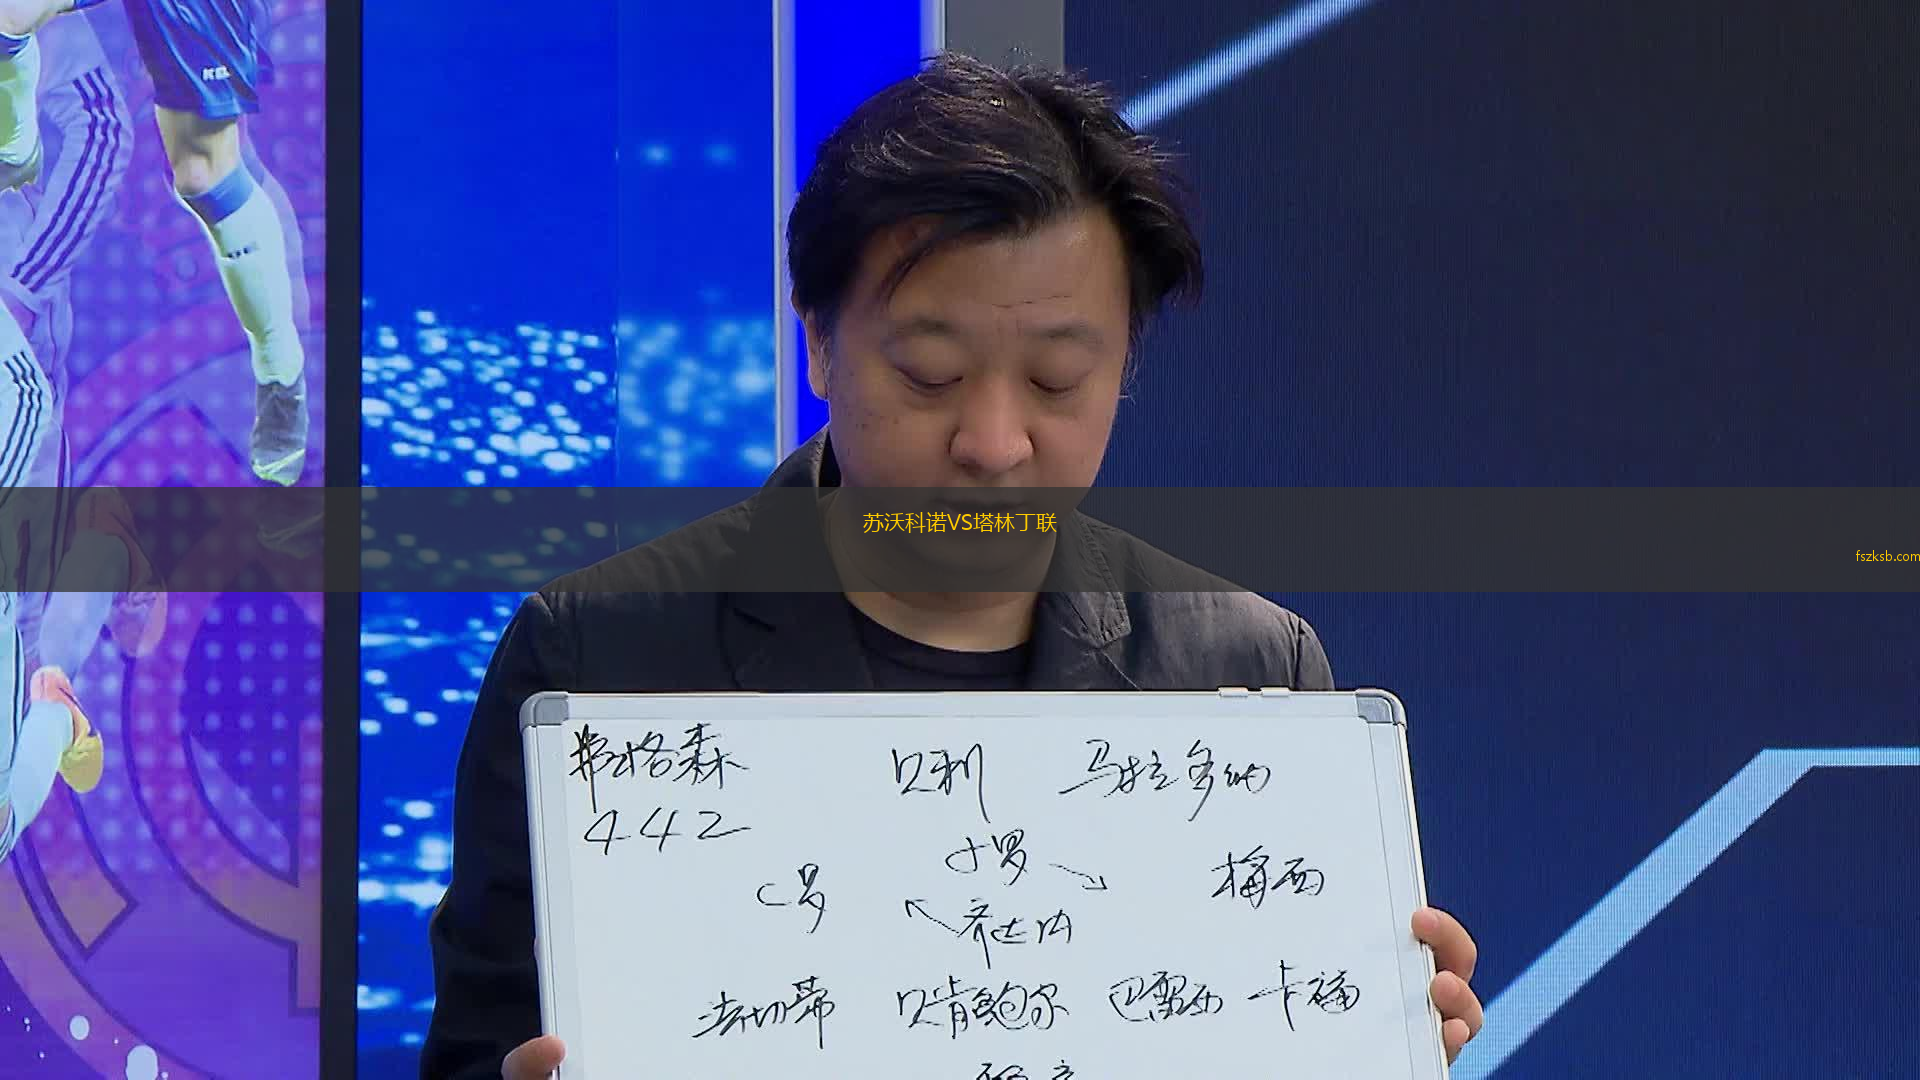 KELME
苏沃科诺VS塔林丁联
fszksb.com
弗格森 贝利 马拉多纳
442
C罗 小罗 梅西
齐达内
法切蒂 贝肯鲍尔 巴雷西 卡福